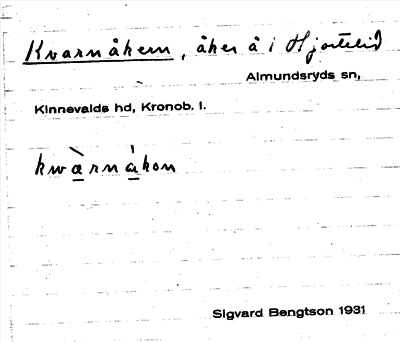 Kvarnåkern, åker å i Hjortelid
Almundsryds sn,
Kinnevalds hd, Kronob. l.
kwàrnåkon
Sigvard Bengtson 1931